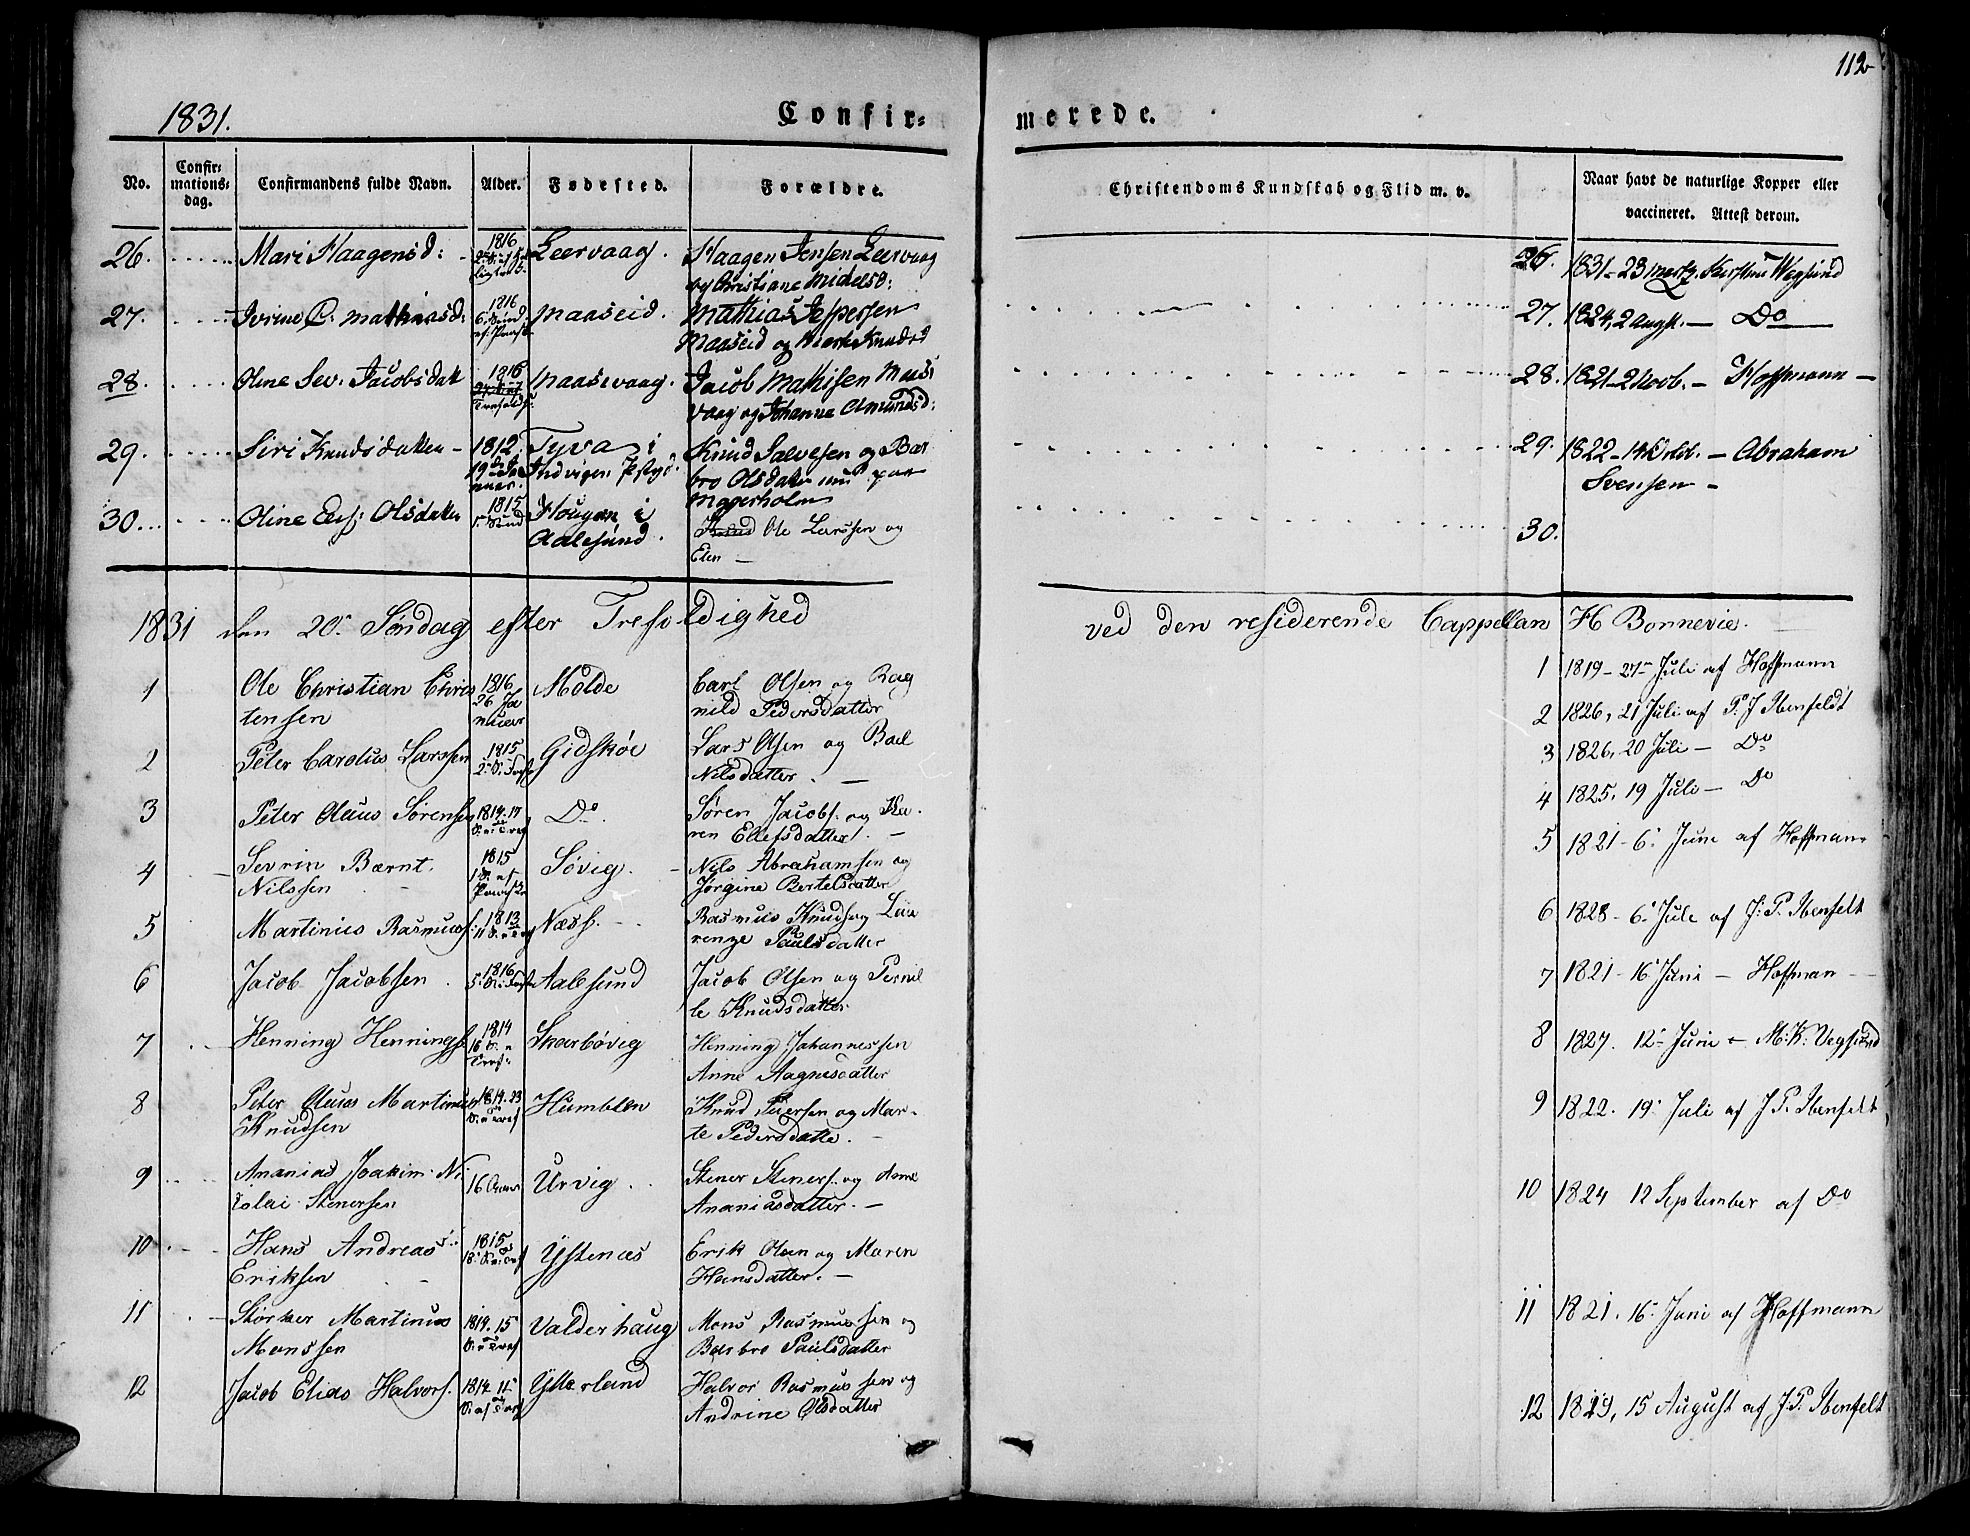 112
1831.
Confir=
merede.
No.
Confir=
mations=
dag.
Confirmandens fulde Navn.
Alder.
Fødested.
Forældre.
Christendoms Kundskab og Flid m. v.
Naar havt de naturlige Kopper eller
vaccineret. Attest derom.
26. Mari Haagensd: 1816 Leervaag. Haagen Jensen Leervaag
og Christiane
26. 1831 - 23 Kirstine Wegsund
27. 1816 Maaseid. Mathias Jespersen
Maaseid og Knudsd
27. 1824, 2 Augst. — Do
28. Oline Sev: Jacobsdatt 1816 Maasevaag. Jacob Mathisen Mus:
vaag og Johanne Amundsd:
28. 1821 - 2 Novb. — Hoffmann —
29. Siri Knudsdatter - 1812 i Knud Salvesen og Bar
bro Olsdatter nu paa
Magerholm
29. 1822 - 14 Octb. — Abraham
Svensen -
30. Oline Olsdatter 1815 Hougen i Ole Larssen og
Aalesund. Elen —
30.
1831 den 20de Søndag efter Trefoldighed
ved den residerende Cappellan H Bonnevie.
1 Ole Christian Chris 1816 Molde Carl Olsen og Rag
tensen 26 Ja nild Pedersdatter
nuar
1 1819 - 27 - Juli af Hoffmann
2 Peter Carolus Larssen 1815 Gidskøe Lars Olsen og
Nilsdatter. —
2 1826, 21 Juli af P. J Ibenfeldt
3 Peter Olaus Sørensen 1814. 17 Do. Søren Jacobs. og Ka-
ren Ellefsdatter. —
3 1826, 20 Juli — Do
4 Sevrin Bernt. 1815 Søvig. - Nils Abrahamsen og
Nilssen Jørgine Bertelsdatter
4 1825, 19 Juli — Do
5 Martinus Rasmuss: 1813 Næss. - Rasmus Knuds og Lau
renze Paulsdatter
5 1821 - 6. Juni af Hoffmann
6 Jacob Jacobsen. 1816 Aalesund Jacob Olsen og Pernil
le Knudsdatter
6 1828 - 6. Jule af J: P. Ibenfelt
7 Henning Hennings. 1814 Skarbøvig Henning Johannessen
16 Anne Aagnesdatter
7 1821 - 16 Juni — Hoffman
8 Peter Olaus Martinus 1814. 23 Humblen Knud Peersen og Mar-
Knudsen te Pedersdatte. —
8 1827. 12 - Juni - M: K: Vegsund
9 Ananias Joakim Ni 16 Aar Urvig. Stener Steners. og Anne
kolai Stenersen Ananiasdatter. —
9 1822. 19. Juli af J P. Ibenfelt
10 Hans Andreas 1815 Ystenæs Erik Olsen og Maren
Eriksen Hansdatter. —
10 1824 12 September af Do
11 Størker Martinus 1814. 15 Valderhaug Mons Rasmussen og
Monssen Barbro Paulsdatter
11 1821. 16 - Juni af Hoffmann
12 Jacob Elias Halvors. 1814. 11 Ytterland Halvor Rasmussen og
Andrine Olsdatter
12 1819, 15 August af J. P. Ibenfelt